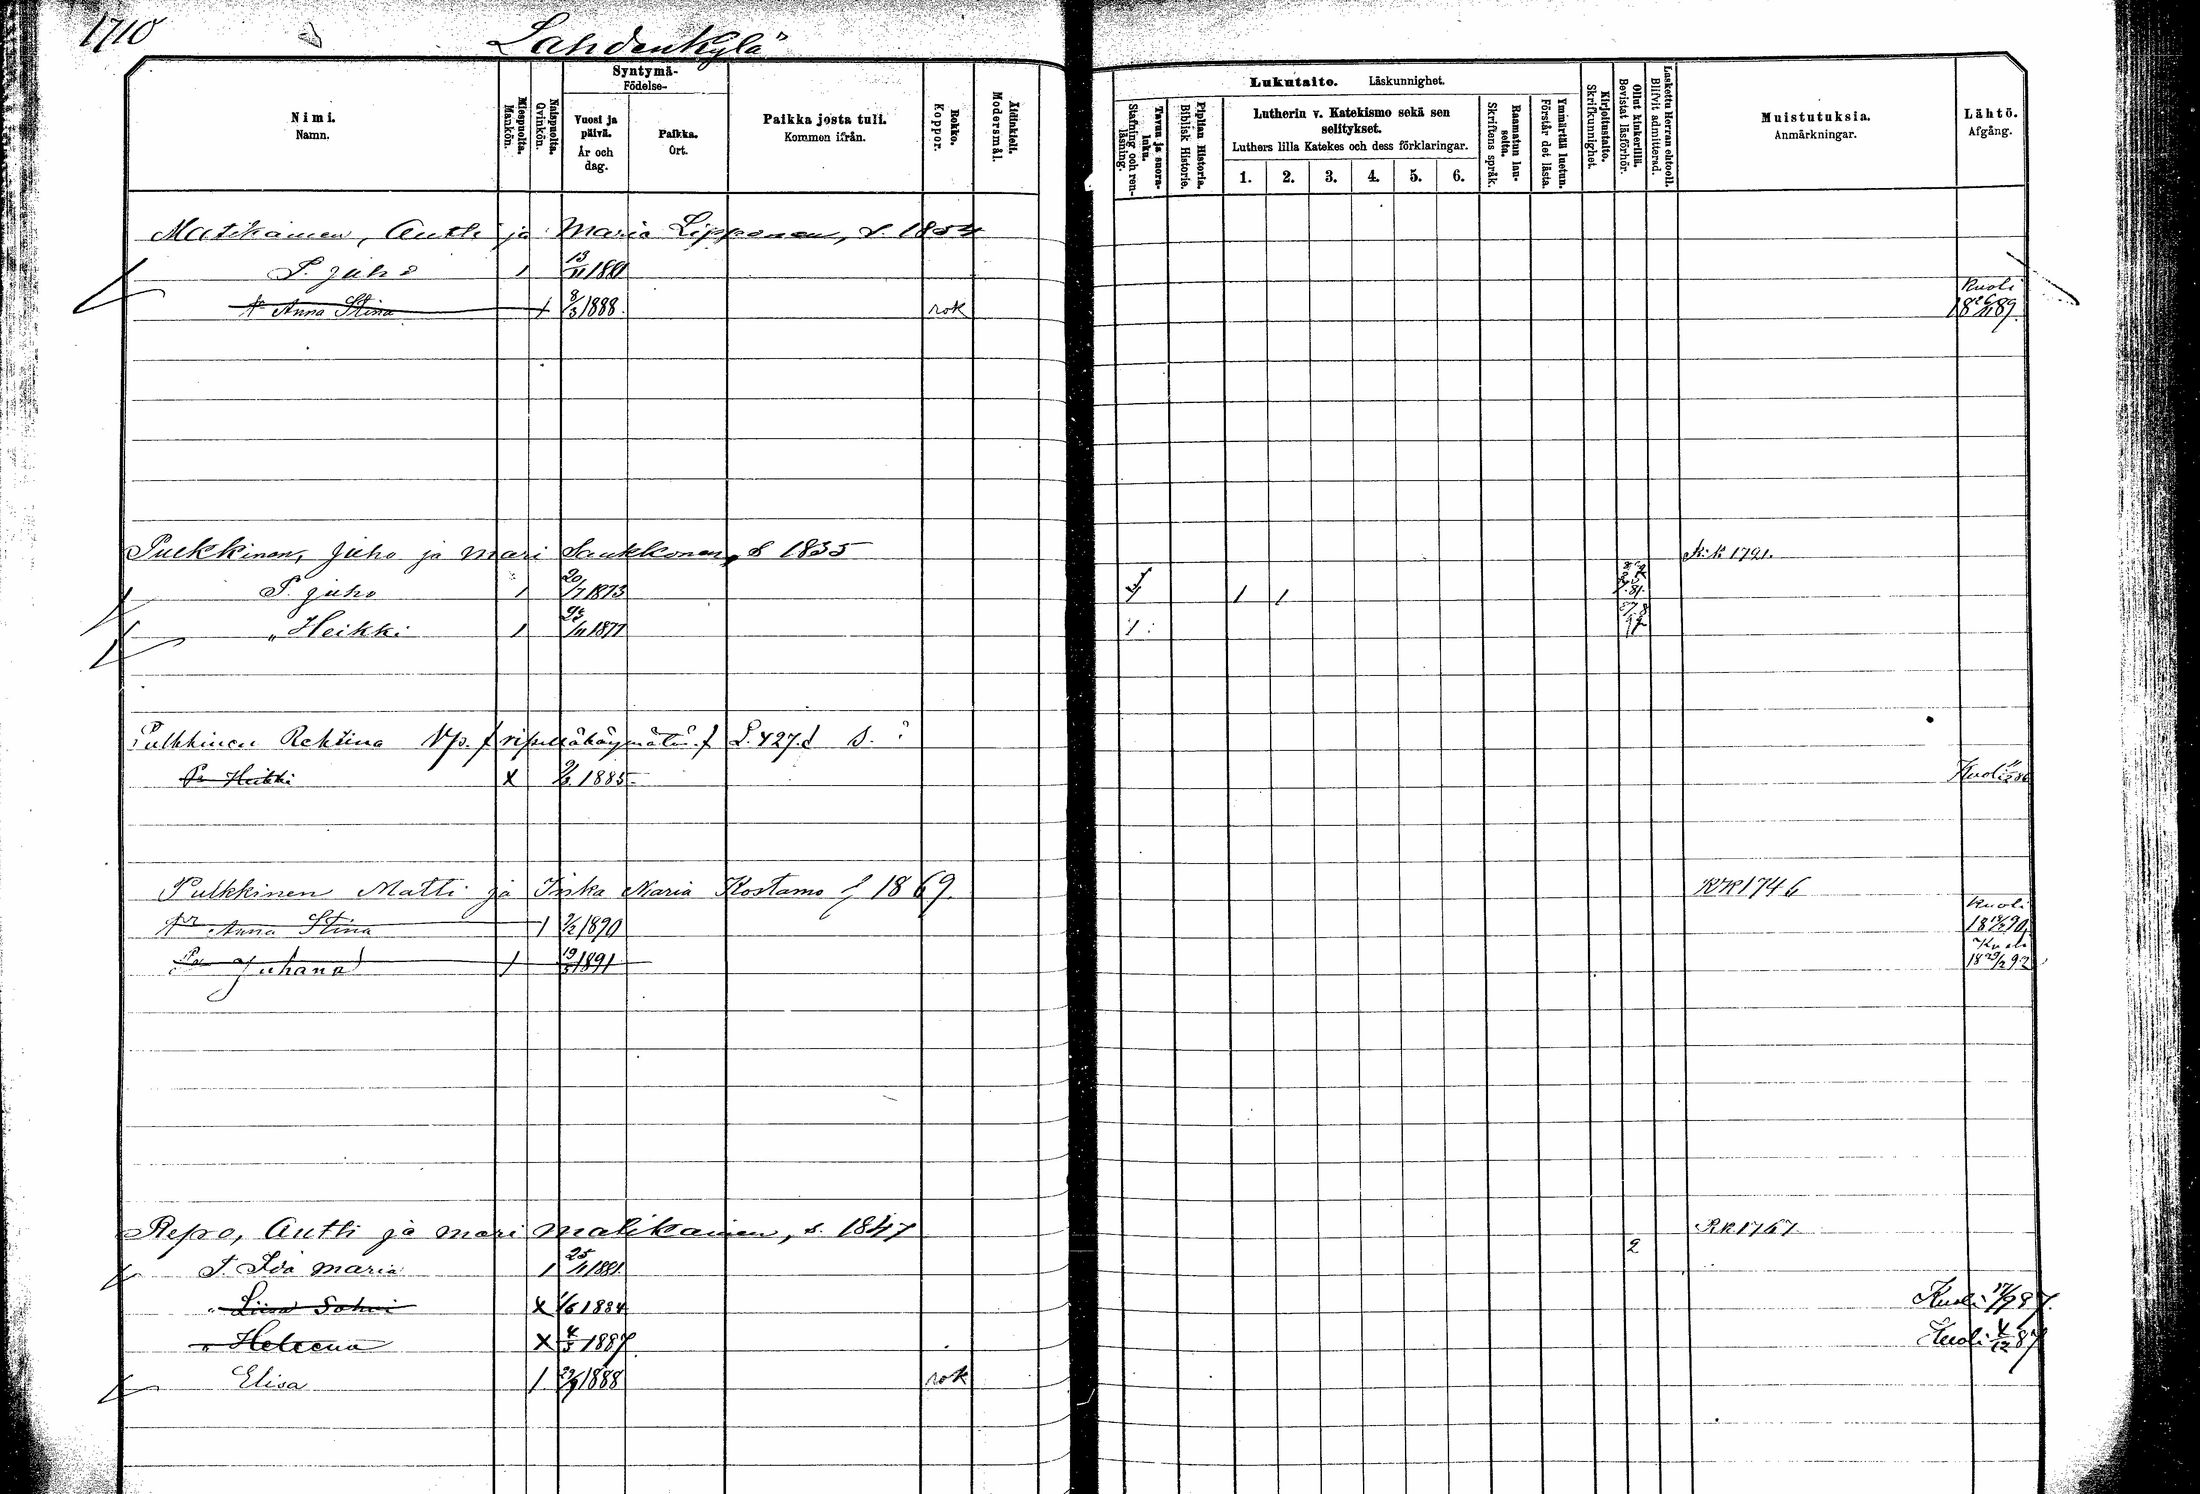 1710
Lahdenkylä
Nimi.
Namn.
Miespuolta.
Mankön.
Naispuolta.
Qvinkön.
Syntymä-
Födelse-
Vuosi ja
päivä.
År och
dag.
Paikka.
Ort.
Paikka josta tuli.
Kommen ifrån.
Rokko.
Koppor.
Äidinkieli.
Modersmål.
Lukutaito. Läskunnighet.
Tavua ja suora-
luku.
Stafning och ren-
läsning.
Piplian Historia.
Biblisk Historie.
Lutherin v. Katekismo sekä sen
selitykset.
Luthers lilla Katekes och dess förklaringar.
1. 2. 3. 4. 5. 6.
Raamatun lau-
seita.
Skriftens språk.
Ymmärtää luetun.
Förstår det lästa.
Kirjoitustaito.
Skrifkunnighet.
Ollut kinkerillä.
Bevistat läsförhör.
Laskettu Herran ehtooll.
Blifvit admitterad.
Muistutuksia.
Anmärkningar.
Lähtö.
Afgång.
Matikainen, Antti ja Maria Lipponen, s. 1854
P. Juho 1 13/11 1880
Tr Anna Stina 1 8/3 1888. rok Kuoli 18 26/11 89.
Pulkkinen, Juho ja Mari Saukkonen, s 1835 K.k 1791.
P. Juho 1 20/7 1873 1 1
" Heikki 1 1877 1
Pulkkinen Rekiina Vp. f ripilläkäymätön f L. 427. s. ?
Pa Heikki x 9/3 1885 Kuoli
Pulkkinen Matti ja Inka Maria Kostamo f 1869. KK 1746
Tr Anna Stina 1 2/2 1890 Kuoli
Pa Juhana 1 19/5 1891 Kuoli 18 29/2 92
Repo, Antti ja Mari Matikainen, s. 1847 RK 1767
T. Ida Maria 1 25/11 1881. 2
" Liisa Sohvi x 1/6 1884 Kuoli 17/9 87.
" Heleena x 4/3 1887 Kuoli 4/12 87
Elisa 1 29/9 1888 rok